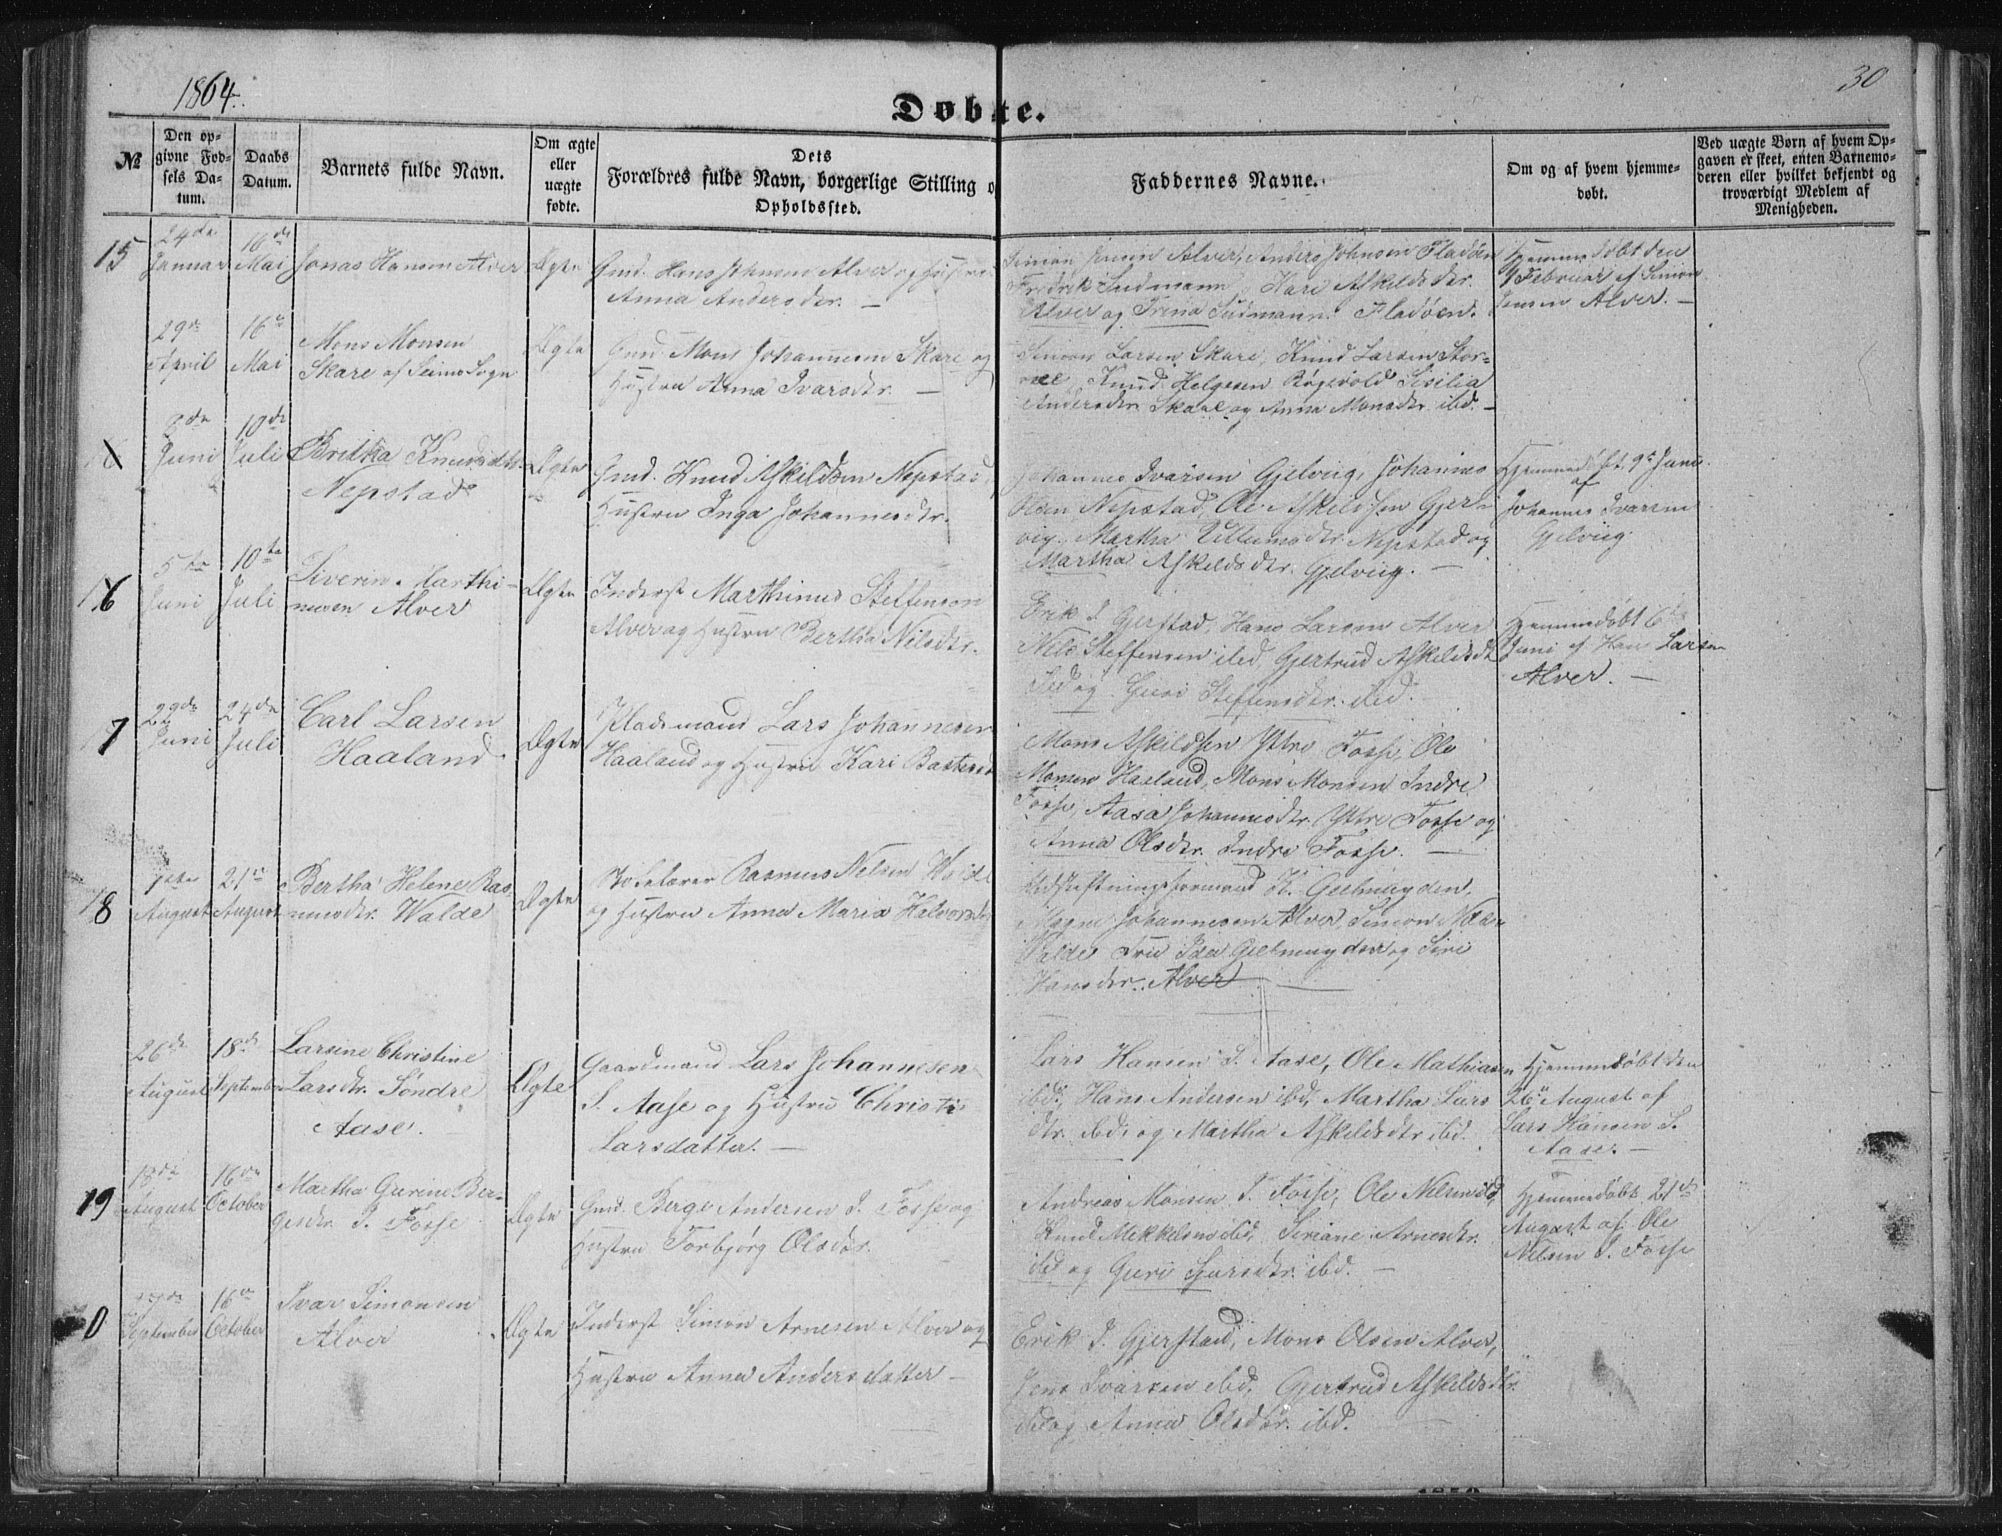 1864.
30
Døbte.
№
Den op-
givne Fød-
sels Da-
tum.
Daabs
Datum.
Barnets fulde Navn.
Om ægte
eller
uægte
fødte.
Dets
Forældres fulde Navn, borgerlige Stilling o
Opholdssted.
Faddernes Navne.
Om og af hvem hjemme-
døbt.
Ved uægte Børn af hvem Op-
gaven er skeet, enten Barnemo-
deren eller hvilket bekjendt og
troværdigt Medlem af
Menigheden.
15
24de
Januar
16de
Mai
Jonas Hansen Alver
Ægte
Gmd. Hans Johnsen Alver og Hustru
Anna Andersdtr. —
Simon Jensen Alver, Anders Johnsen Fladøen
Fredrik Sudmann, Kari Askildsdtr.
Alver og Trina Sudmann Fladøen.
Hjemmedøbt den
9 Februar af Simon
Jensen Alver. —
29de
April
16de
Mai
Mons Monsen
Skare af Seims Sogn
Ægte
Gmd. Mons Johannesen Skare og
Hustru Anna Ivarsdtr. —
Simon Larsen Skare, Knud Larsen
Knud Helgesen Sisilia
Andersdtr. Skare og Anna Monsdtr. ibd. —
8de
Juni
10de
Juli
Britha Knudsdtr.
Nepstad
Ægte
Gmd. Knud Askildsen Nepstad,
Hustru Inga Johannesdtr.
Johannes Ivarsen Gjelvig, Johannes
Olsen Nepstad, Ole Askildsen Gjel-
vig, Martha Villumsdtr. Nepstad og
Martha Askildsdtr. Gjelvig. —
Hjemmedøbt 9de Juni
af
Johannes Ivarsen
Gjelvig
16
5te
Juni
10de
Juli
Siverin Marthi-
nusen Alver
Ægte
Inderst Marthinus Steffenson
Alver og Hustru Bertha Nilsdtr.
Erik I. Gjerstad, Hans Larsen Alver
Nils Steffensen ibd, Gjertrud Askildsdtr
ibd og Guri Steffensdtr. ibd.
Hjemmedøbt 6te
Juni af Hans Larsen
Alver. —
17
22de
Juni
24de
Juli
Carl Larsen
Haaland
Ægte
Pladsmand Lars Johannesen
Haaland og Hustru Kari
Mons Askildsen Ytre Fosse, Ole
Monsen Haaland, Mons Monsen Indre
Fosse, Aasa Johannesdtr. Ytre Fosse og
Anna Olsdtr. Indre Fosse. —
18
1ste
August
21de
August
Bertha Helene Ras-
musdtr. Walde
Ægte
Rasmus Nelsen Walde
og Hustru Anna Maria Halvorsdtr
Udskiftningsformand K. Geelmuyden,
Magne Johannesen Alver, Simon
Valde Fru Ida Geelmuyden og Siri
Hansdtr. Alver —
26de
August
18de
September
Larsine Christine
Larsdtr. Søndre
Aase.
Ægte
Gaardmand Lars Johannesen
S. Aase og Hustru Christi
Larsdatter. —
Lars Hansen S. Aase, Ole Mathiasen
ibd, Hans Andersen ibd, Martha Lars
dtr. ibd, og Martha Askildsdtr ibd.
Hjemmedøbt den
26de August af
Lars Hansen S.
Aase. —
19
18de
August
16de
October
Martha Gurine Ber-
gesdtr. I. Fosse
Ægte
Gmd. Berge Andersen I. Fosse og
Hustru Torbjørg Olsdtr.
Andreas Monsen I. Fosse, Ole Nilsen ibd,
Knud Mikkelsen ibd, Siriane Arnesdtr.
ibd og Guri Larsdtr. ibd. —
Hjemmedøbt 21de
August af Ole
Nilsen I. Fosse
0
September
16de
October
Ivar Simonsen
Alver
Ægte
Inderst Simon Arnesen Alver og
Hustru Anna Andersdatter —
Erik I. Gjerstad, Mons Olsen Alver,
Jens Ivarsen ibd, Gjertrud Askildsdtr.
ibd og Anna Olsdtr. ibd.